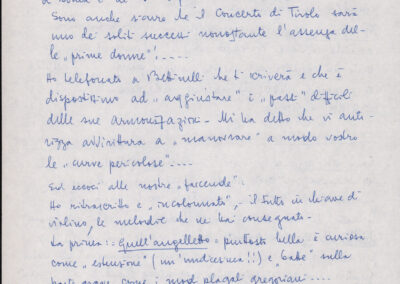 Sono anche sicuro che il Concerto di Tivolo sarà
uno dei soliti successi nonostante l'assenza del-
le „prime donne"!....
Ho telefonato a Bettinelli che ti scriverà e che è
dispostissimo ad „aggiustare" i „passi" difficili
delle sue armonizzazioni. Mi ha detto che vi auto-
rizza addirittura a „manovrare" a modo vostro
le „curve pericolose"....
Ed eccoci alle nostre „faccende".
Ho ritrascritto e „incolonnato", il tutto in chiave di
violino, le melodie che mi hai consegnato.
La prima: = Quell'augelletto = piuttosto bella: è curiosa
come „estensione" (un'undicesima!!) e „gabe" sulla
parte grave come i modi plagali gregoriani....